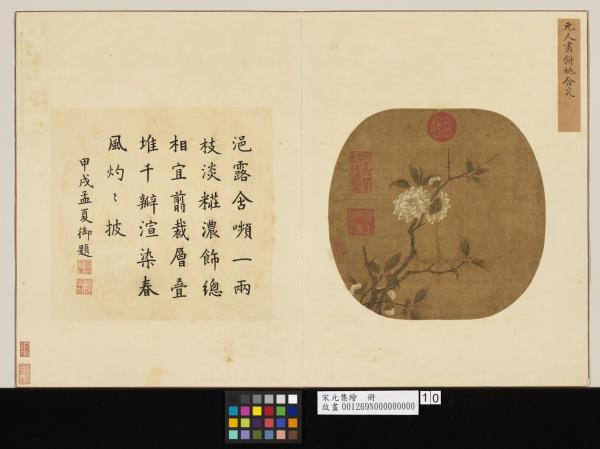 元人畫桃含笑
浥露含嚬一兩
枝淡糚濃飾總
相宜翦裁層疊
堆千瓣渲染春
風灼〻披
甲戌孟夏御題
宋元集繪　冊
故畫 001269N000000000
10